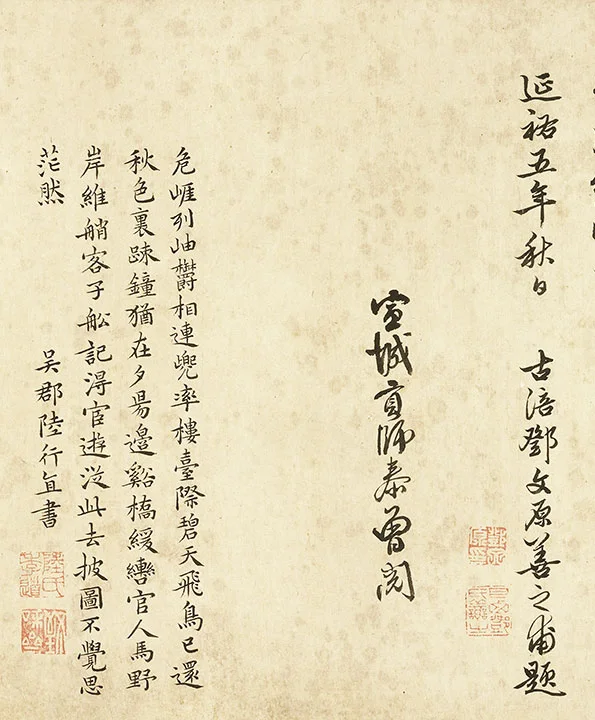 延祐五年秋日 古涪鄧文原善之甫題
宣城貢師泰曾閱
危崕列岫欝相連兜率樓臺際碧天飛鳥已還
秋色裏疎鐘猶在夕昜邊谿橋緩轡官人馬野
岸維艄客子舩記淂官遊從此去披圖不覺思
茫然
吳郡陸行直書
陸氏